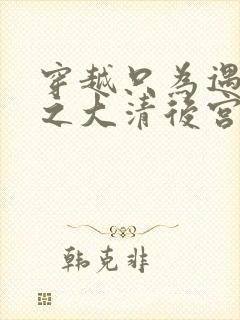 穿越只為遇
之大清後宮
韩克非